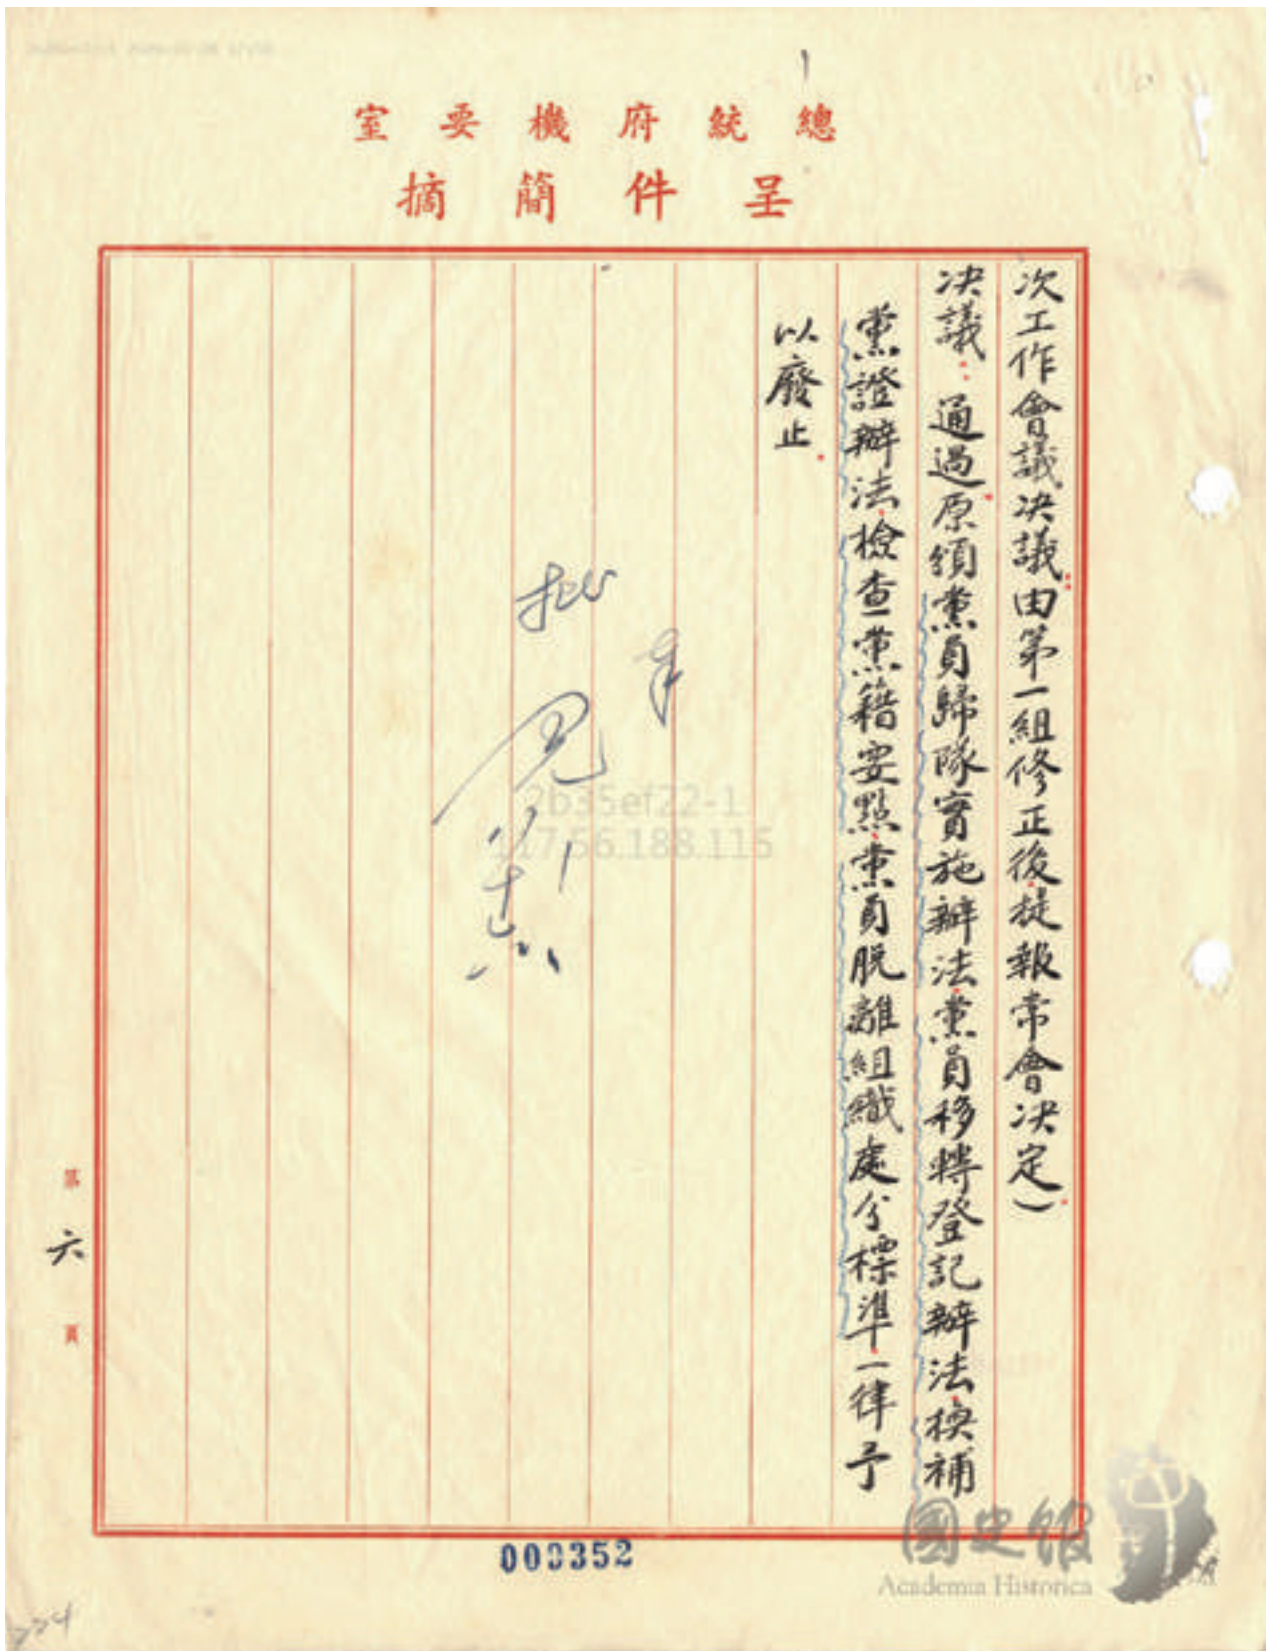 總統府機要室
呈件簡摘
次工作會議決議由第一組修正後提報常會決定）
決議：通過原頒黨員歸隊實施辦法黨員移轉登記辦法換補
黨證辦法檢查黨籍要點黨員脫離組織處分標準一律予
以廢止
奉
批
閱
第六頁
000352
2b35ef22-1
117.56.188.115
國史館
Academia Historica